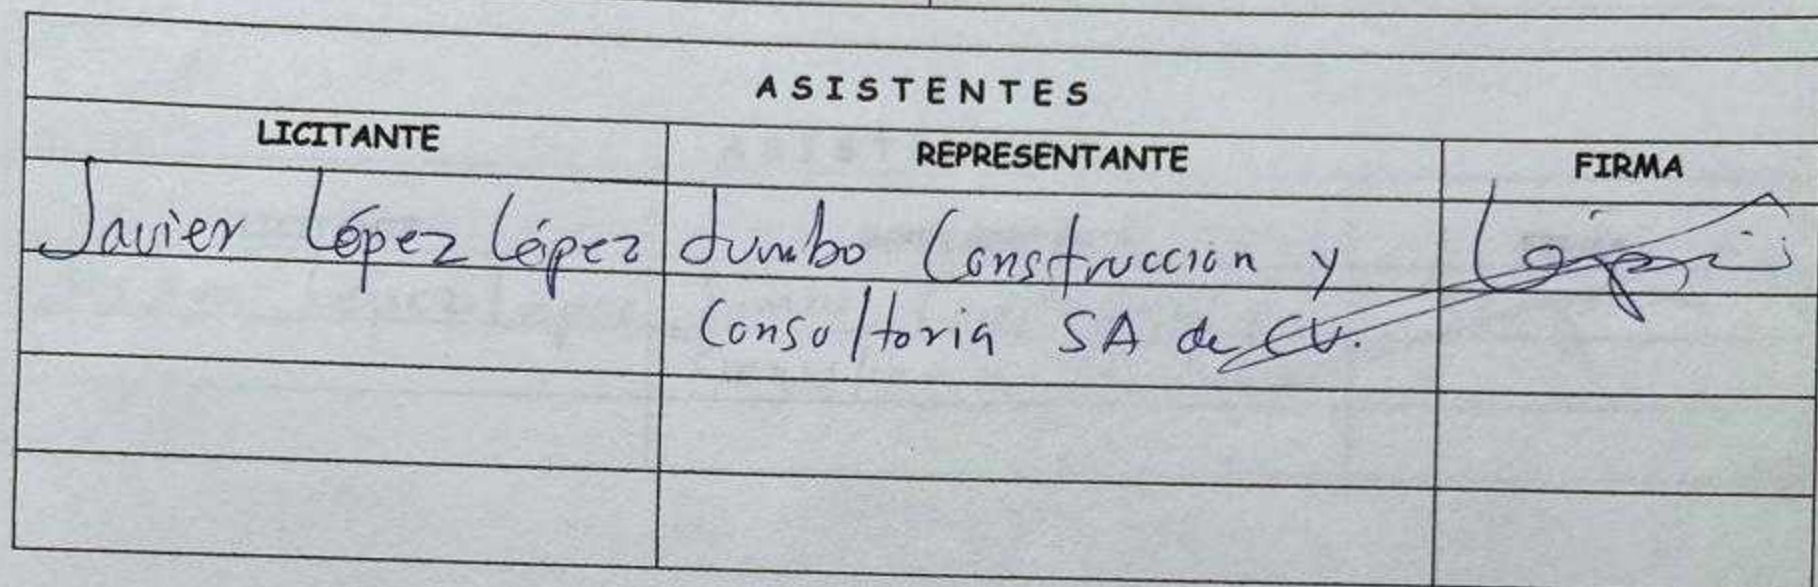 ASISTENTES
LICITANTE REPRESENTANTE FIRMA
Javier López López Jumbo Construccion y
Consultoria SA de CV.